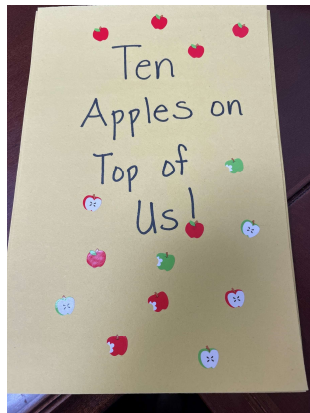 Ten
Apples on
Top of
Us!